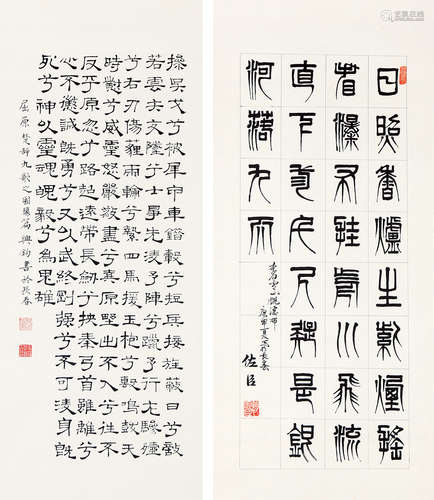 日照香爐生紫煙遙
看瀑布挂前川飛流
直下三千尺疑是銀
河落九天
佐臣
操吳戈兮被犀甲車錯轂兮短兵接旌蔽日兮敵
若雲矢交墜兮士爭先凌余陣兮躐余行左驂殪
兮右刃傷霾兩輪兮縶四馬援玉枹兮擊鳴鼓天
時懟兮威靈怒嚴殺盡兮棄原野出不入兮往不
反平原忽兮路超遠帶長劍兮挾秦弓首雖離兮
心不懲誠既勇兮又以武終剛強兮不可凌身既
死兮神以靈魂魄毅兮為鬼雄
屈原楚辭九歌之國殤篇興鈞書於長春